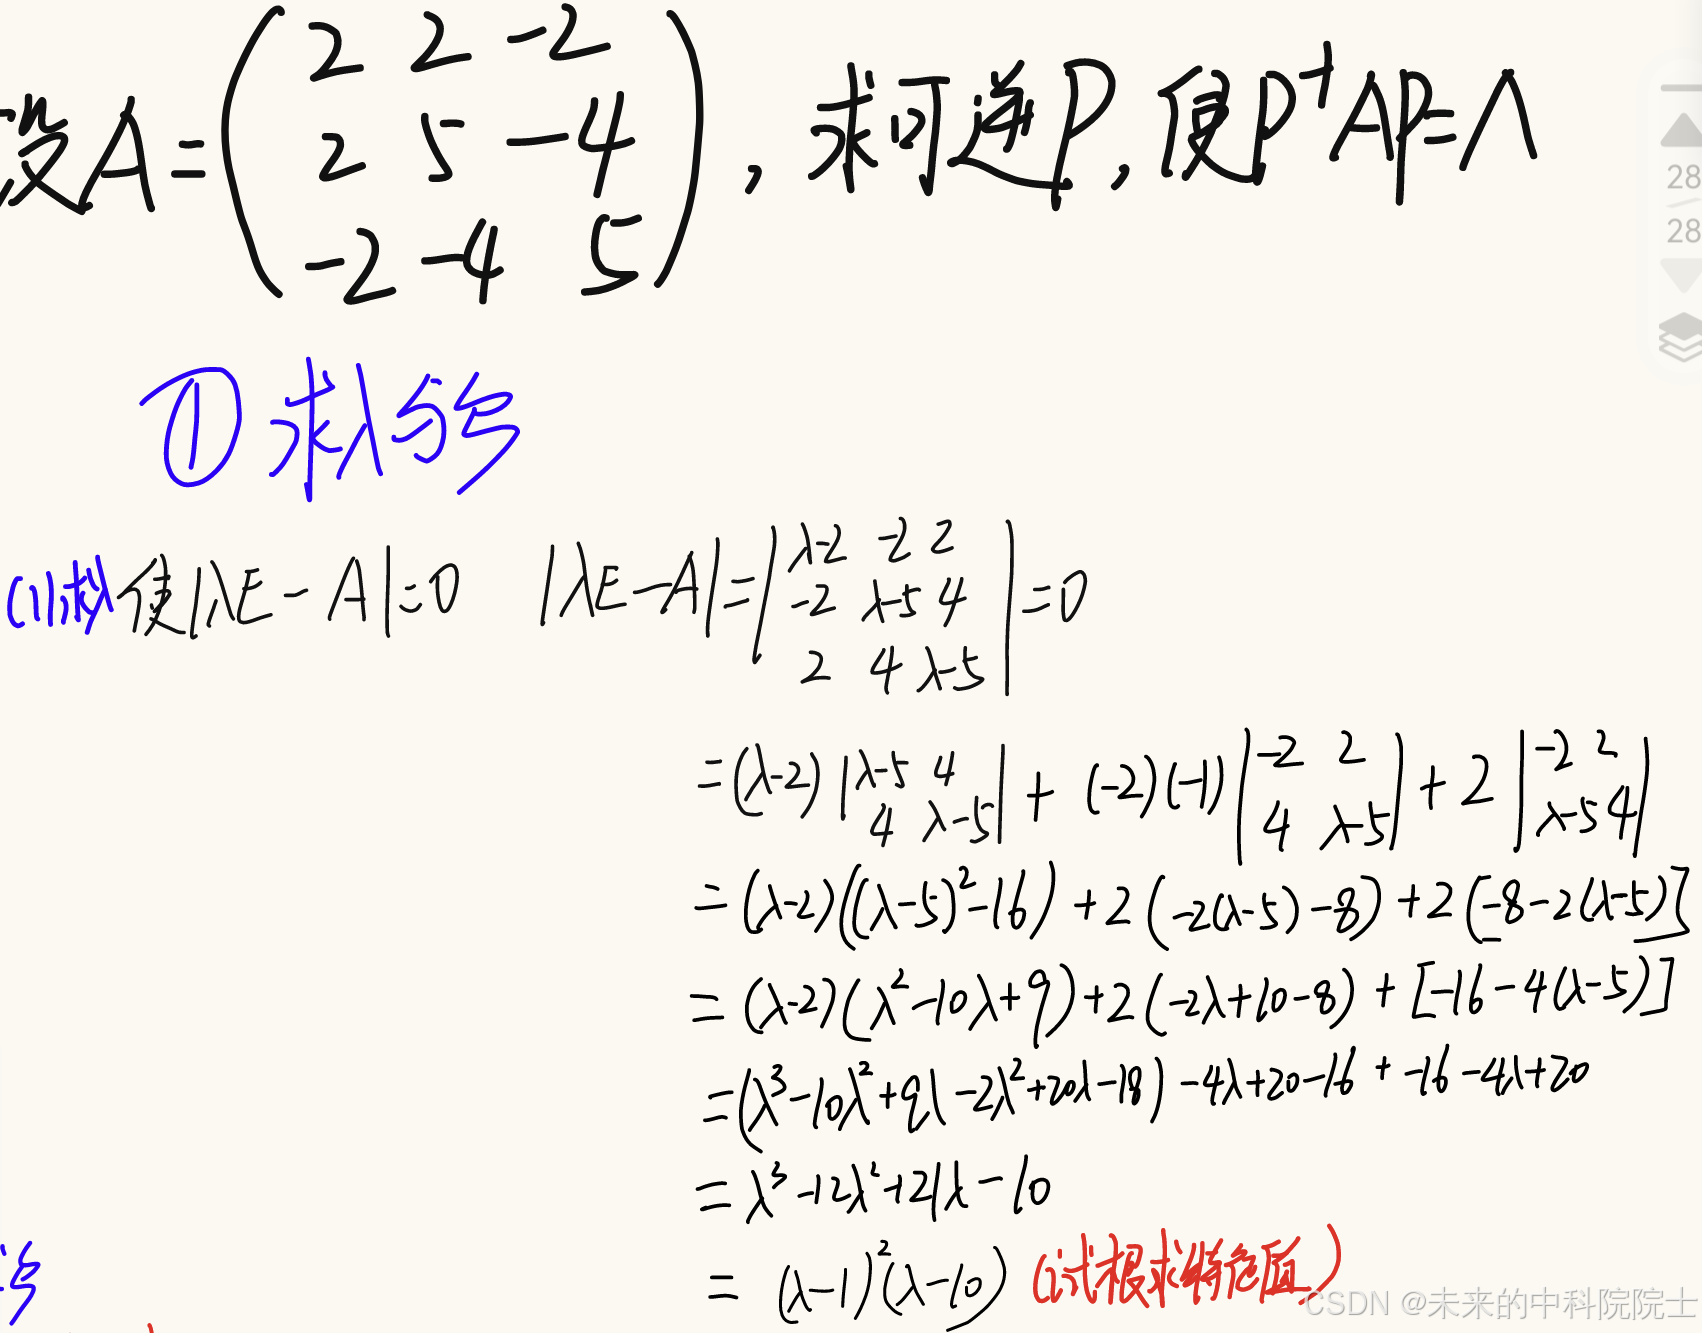 设A=(2 2 -2
2 5 -4
-2 -4 5), 求可逆P, 使P⁻¹AP=Λ
28
28
① 求λ与ξ
(1)求λ 使|λE-A|=0 |λE-A|=|λ-2 -2 2
-2 λ-5 4
2 4 λ-5|=0
=(λ-2)|λ-5 4
4 λ-5|+(-2)(-1)|-2 2
4 λ-5|+2|-2 2
λ-5 4|
=(λ-2)((λ-5)²-16)+2(-2(λ-5)-8)+2[-8-2(λ-5)]
=(λ-2)(λ²-10λ+9)+2(-2λ+10-8)+[-16-4(λ-5)]
=(λ³-10λ²+9λ-2λ²+20λ-18)-4λ+20-16+-16-4λ+20
=λ³-12λ²+21λ-10
=(λ-1)²(λ-10) (试根求特征值)
ξ
CSDN @未来的中科院院士